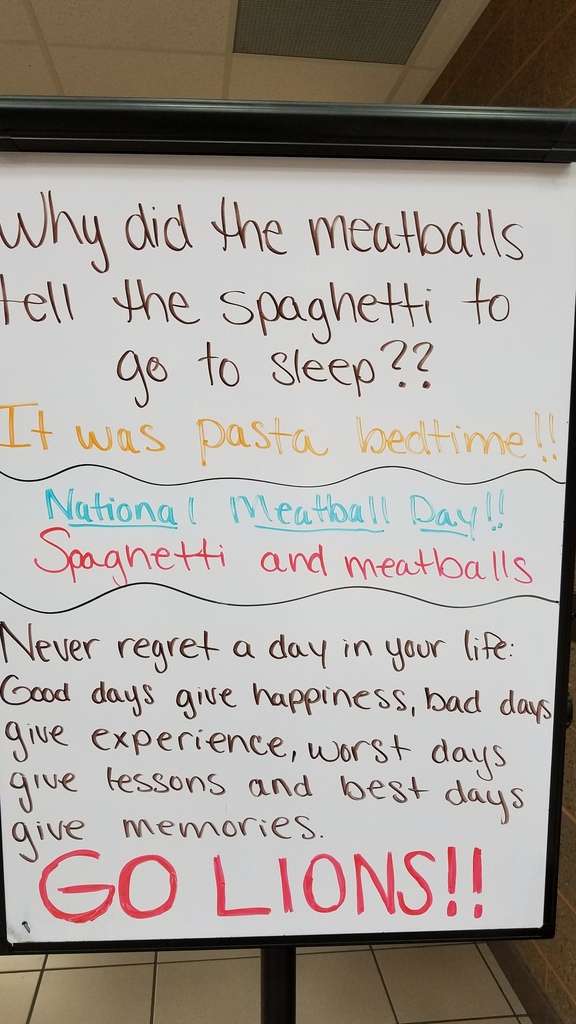 Why did the meatballs
tell the spaghetti to
go to sleep??
It was pasta bedtime!!
National Meatball Day!!
Spaghetti and meatballs
Never regret a day in your life:
Good days give happiness, bad days
give experience, worst days
give lessons and best days
give memories.
GO LIONS!!